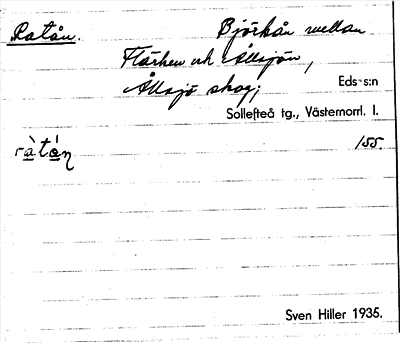 Ratån. Björkån mellan
Flärken och Ållsjön,
Ållsjö skog; Eds s:n
Sollefteå tg., Västernorrl. l.
ràtá̀n 155.
Sven Hiller 1935.